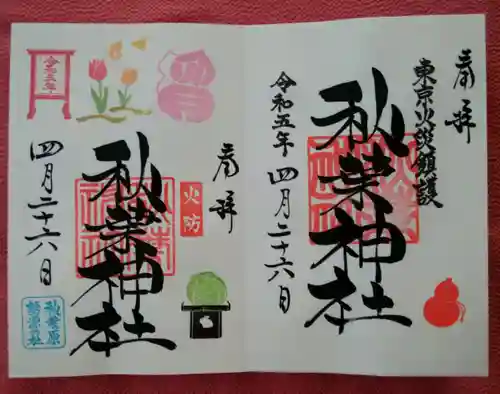 奉拝
東京火災鎮護
秋葉神社
令和五年 四月二十六日
奉拝
火防
秋葉神社
四月二十六日
令和五年
秋葉原